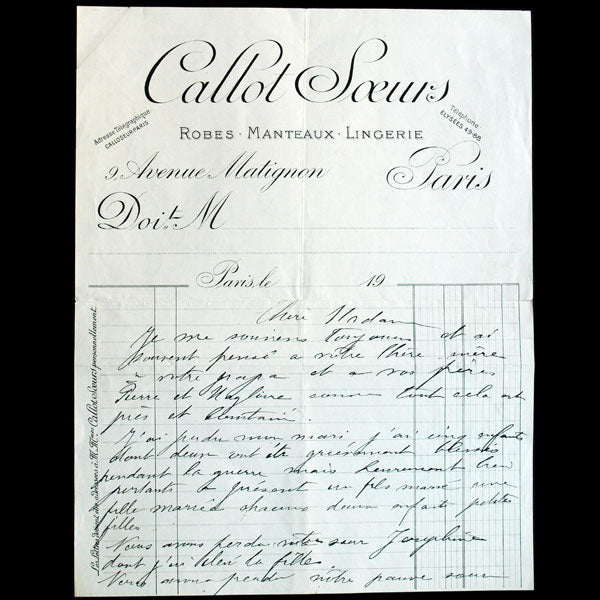 Callot Sœurs
Adresse Télégraphique
CALLOSEUR PARIS
Téléphone:
ÉLYSÉES 49-68
ROBES · MANTEAUX · LINGERIE
9, Avenue Matignon
Paris
Doit M
Paris, le 19
Chère Madame
Je me souviens toujours et ai
souvent pensé a votre chère mère
à votre papa et a vos frères
Pierre et comme tout cela est
près et
J'ai perdu mon mari j'ai cinq enfants
dont deux ont été grièvement blessés
pendant la guerre mais heureusement bien
portants a présent un fils marié une
fille mariée chacuns deux enfants petites
filles
Nous avons perdu notre sœur Joséphine
dont j'ai la fille.
Nous avons perdu notre pauvre sœur
Callot Sœurs personnellement.